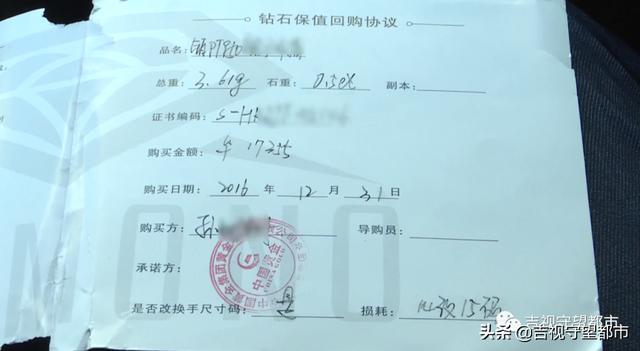 钻石保值回购协议
品名:
总重: 3.61g 石重: 0.50ct 副本:
证书编码: S-H
购买金额: ¥ 17255
购买日期: 2016 年 12 月 31 日
购买方: 孙 导购员:
承诺方:
中国黄金
CHINA GOLD
是否改换手尺寸码: 是 损耗: 15码
吉视守望都市
头条@吉视守望都市